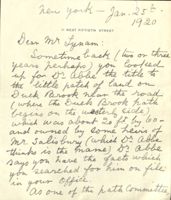 New York - Jan. 25th
1920
11 WEST FIFTIETH STREET
Dear Mr Lynam:
Sometime back (two or three
years perhaps) you looked
up for Dr Abbe the title to
the little patch of land on
Duck Brook near the road
(where the Duck Brook path
begins on the western side)
which was about 20 ft by 60 -
and owned by some heirs of
Mr Salisbury (which Dr Abbe
thinks is the name) Dr Abbe
says you have the facts which
you searched for him on file
in your office.
As one of the path Committee